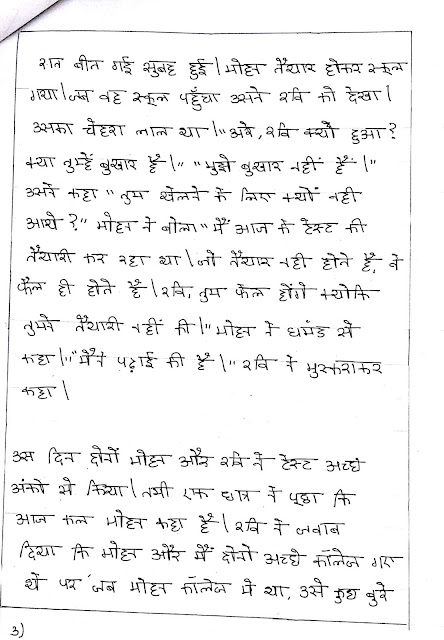 रात बीत गई सुबह हुई। मोहन तैयार होकर स्कूल
गया। जब वह स्कूल पहुँचा उसने रवि को देखा।
उसका चेहरा लाल था। "अरे, रवि क्यों हुआ?
क्या तुम्हें बुखार है।" "मुझे बुखार नहीं हैं।"
उसने कहा "तुम खेलने के लिए क्यों नही
आये?" मोहन ने बोला "मैं आज के टेस्ट की
तैयारी कर रहा था। जो तैयार नही होते है, वे
फैल ही होते है। रवि, तुम फेल होंगे क्योकि
तुमने तैयारी नहीं की।" मोहन ने घमंड से
कहा। "मैंने पढ़ाई की है।" रवि ने मुस्कराकर
कहा।
उस दिन दोनों मोहन और रवि ने टेस्ट अच्छे
अंको से किया। तभी एक छात्र ने पूछा कि
आज कल मोहन कहा है। रवि ने जवाब
दिया कि मोहन और मैं दोनो अच्छे कॉलेज गए
थे पर जब मोहन कॉलेज मे था, उसे कुछ बुरे
3)